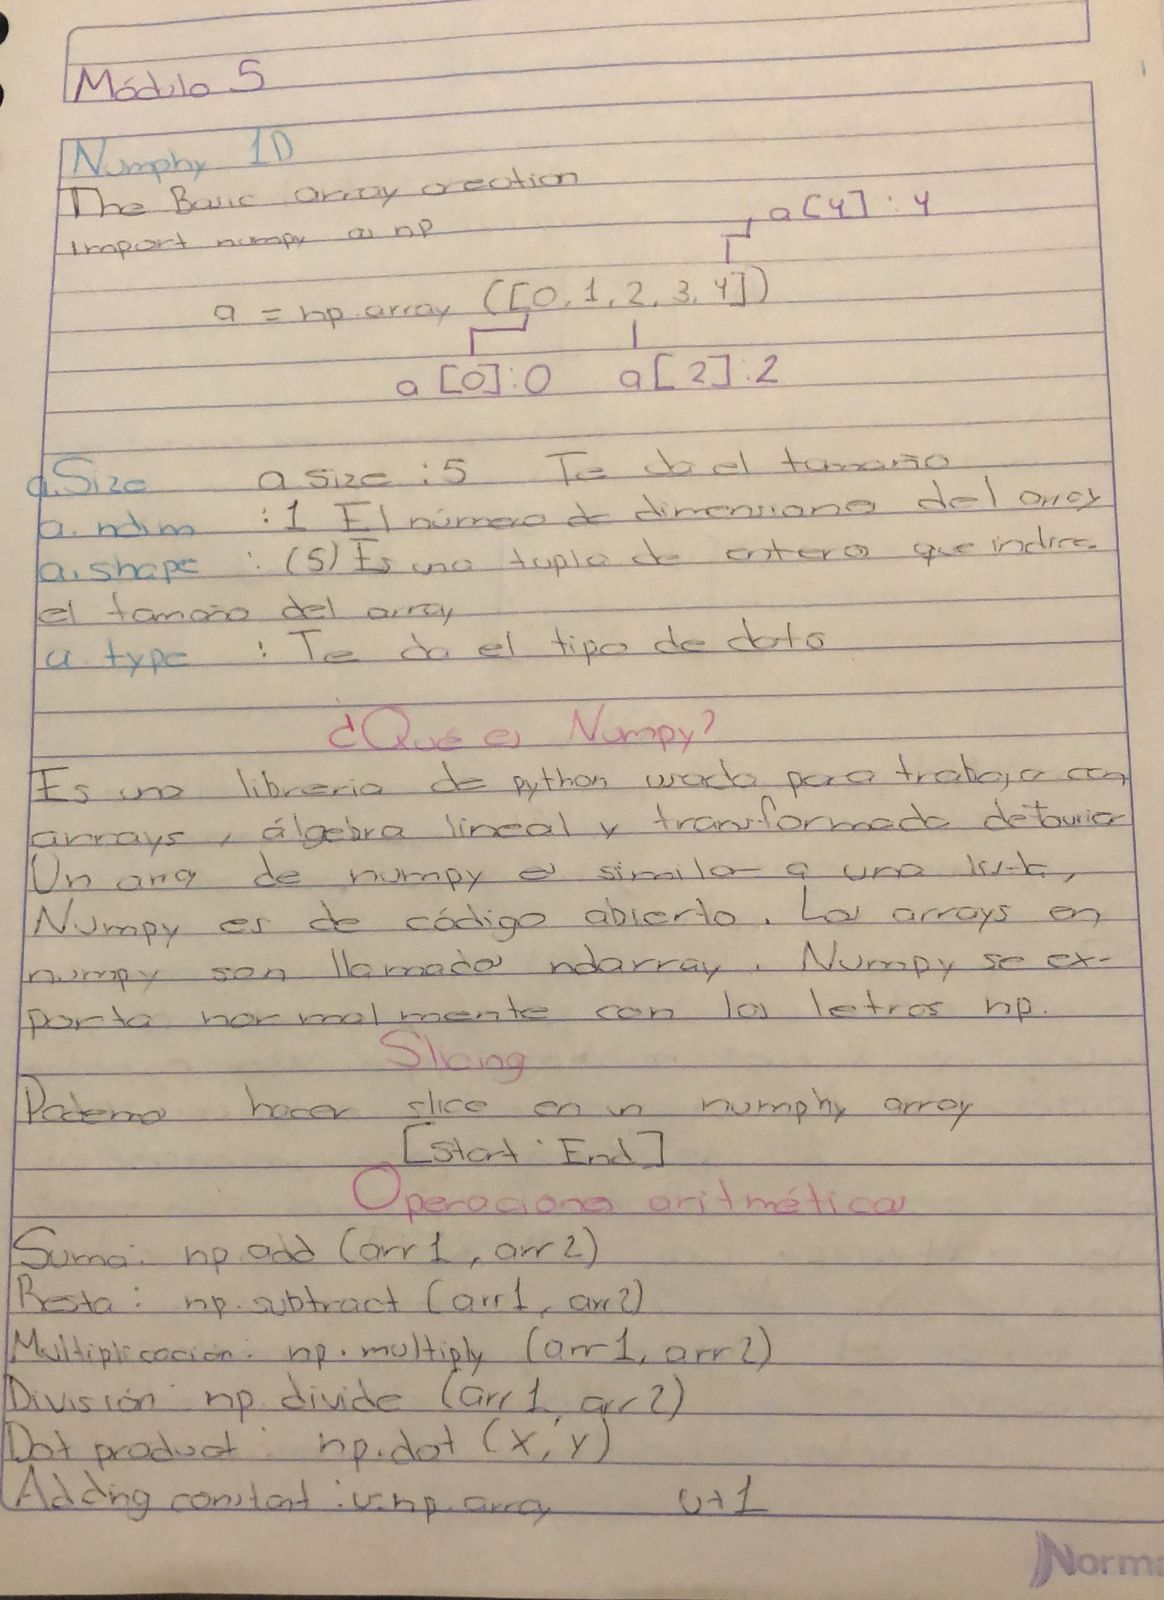 Módulo 5
Numphy 1D
The Basic array creation
import numpy as np
a[4]:4
a = np.array ([0, 1, 2, 3, 4])
a[0]:0 a[2]:2
a.Size a size : 5 Te da el tamaño
a. ndim : 1 El número de dimensiones del array
a.shape : (5) Es una tupla de enteros que indica
el tamaño del array
a type : Te da el tipo de dato
¿Qué es Numpy?
Es una libreria de python usada para trabajar con
arrays, álgebra lineal y transformada de fourier
Un array de numpy es similar a una lista,
Numpy es de código abierto. Los arrays en
numpy son llamados ndarray. Numpy se ex-
porta normalmente con las letras np.
Slicing
Podemos hacer slice en un numphy array
[Start : End]
Operaciones aritméticas
Suma: np add (arr1, arr2)
Resta: np.subtract (arr1, arr2)
Multiplicación: np.multiply (arr1, arr2)
División: np divide (arr1, arr2)
Dot product: np.dot (x, y)
Adding constant: u:np.array u+1
Norma